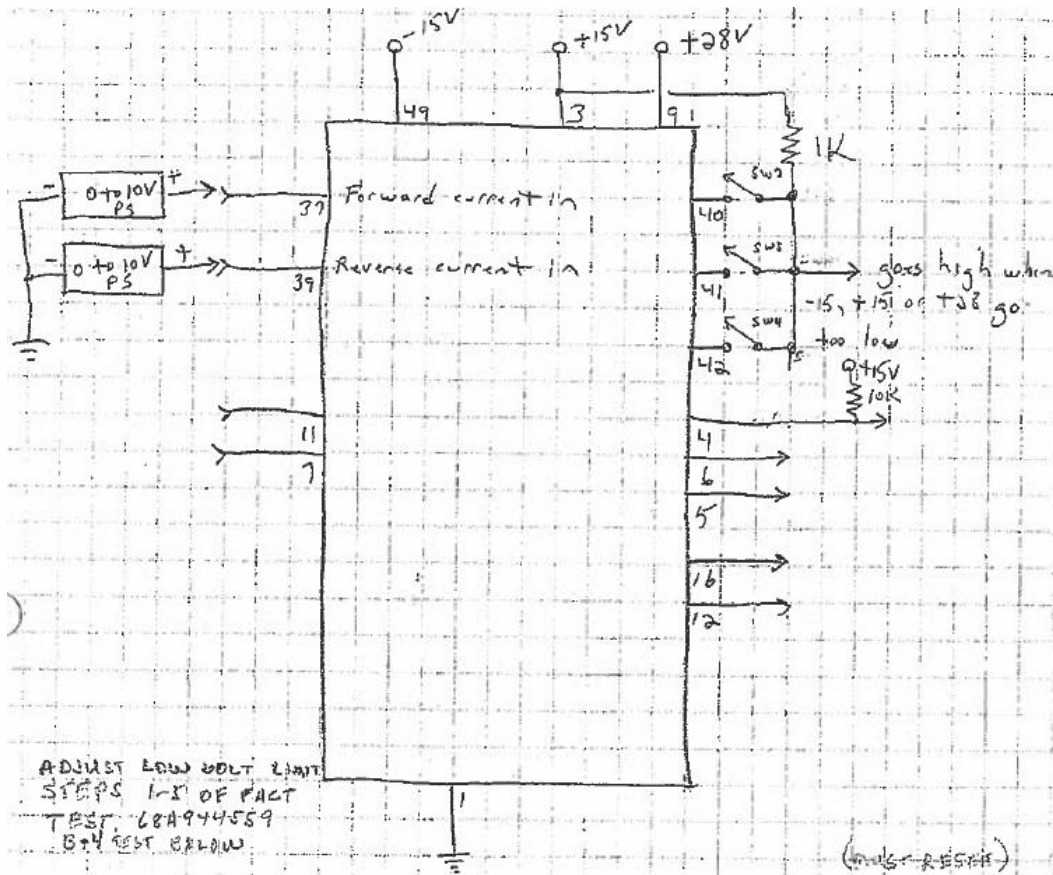 -15V
+15V
+28V
49
3
9
1K
0 to 10V
PS
+
-
37
Forward current in
40
SW2
0 to 10V
PS
+
-
39
Reverse current in
41
goes high when
-15, +15 or +28 go
too low
42
SW4
+15V
10K
11
4
7
6
5
16
12
ADJUST LOW VOLT LIMIT
STEPS 1-5 OF FACT
TEST
TEST BELOW
1